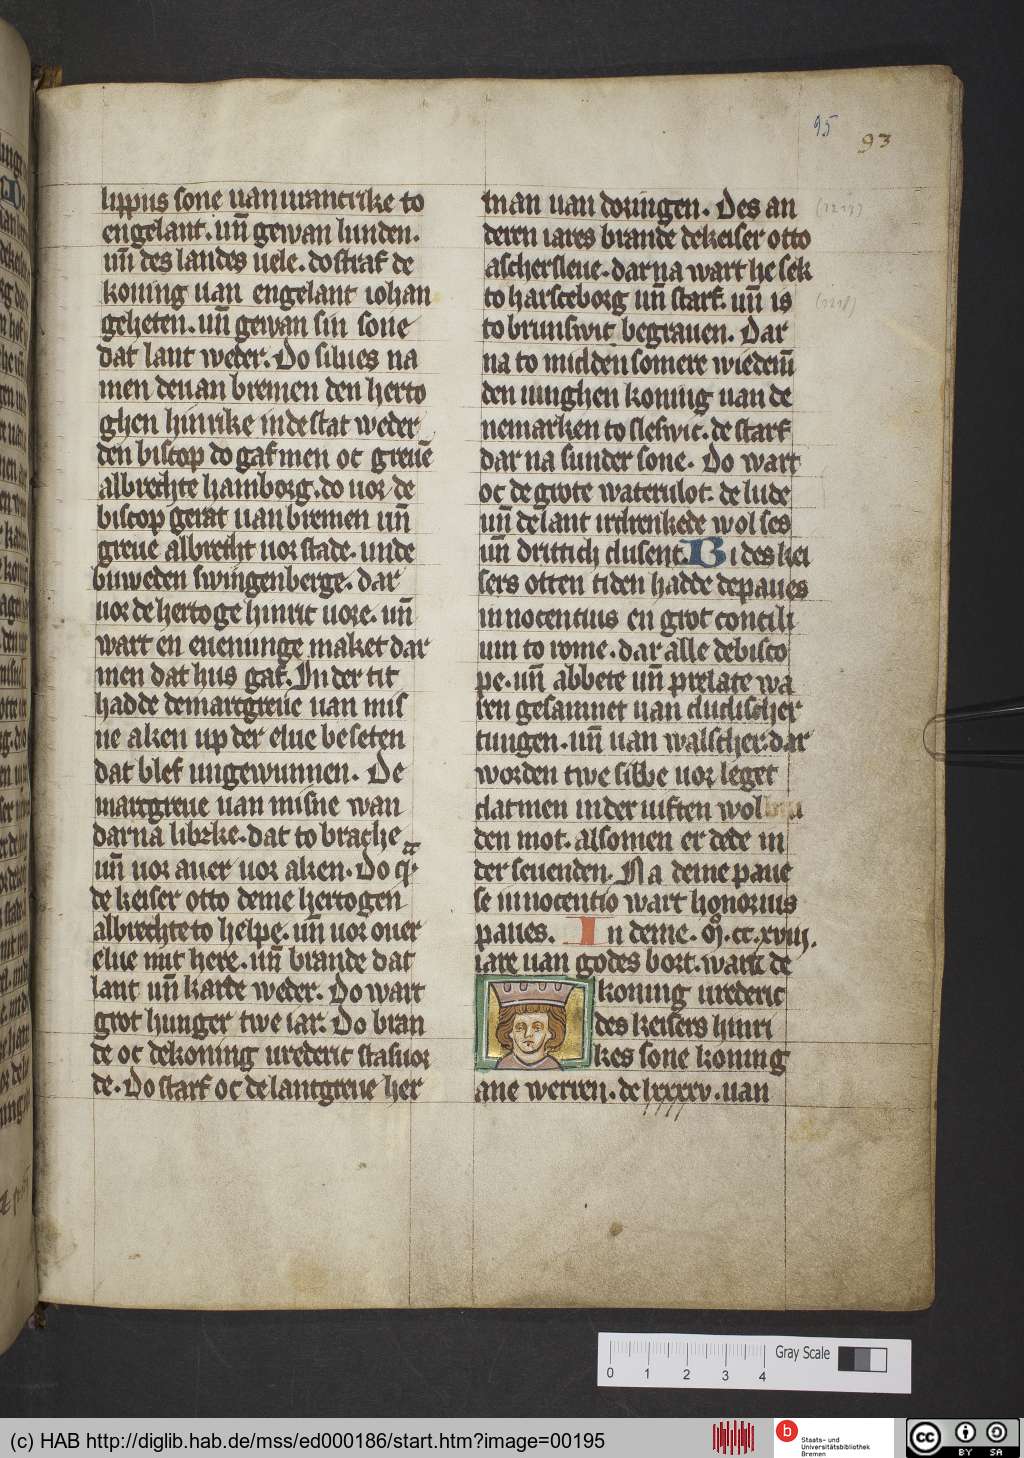 95
93
lippus sone uan urancrike to
engelant. uñ gewan lunden.
uñ des landes uele. do starf de
koning uan engelant iohan
geheten. uñ gewan sin sone
dat lant weder. Do silues na
men deuan bremen den herto
ghen hinrike in de stat weder
den biscop do gaf men oc greuē
albrechte hamborg. do uor de
biscop gerat uan bremen uñ
greue albrecht uor stade. unde
buweden swingenberge. dar
uor de hertoge hinric uore. uñ
wart en euenunge maket dar
men dat hus gaf. In der tit
hadde de marcgreue uan mis
ne aken up der elue beseten
dat blef ungewunnen. De
marcgreue uan misne wan
darna librke. dat to brachē
uñ uor auer uor aken. Do q̄
de keiser otto deme hertogen
albrechte to helpe. uñ uor ouer
elue mit here. uñ brande dat
lant uñ karde weder. Do wart
grot hunger twe iar. Do bran
de oc de koning urederic stasuor
de. Do starf oc de lantgreue her
man uan doringen. Des an
deren iares brande de keiser otto
aschersleue. dar na wart he sek
to harsceborg uñ starf. uñ is
to brunswic begrauen. Dar
na to midden somere wiedeñ
den iunghen koning uan de
nemarken to sleswic. de starf
dar na sunder sone. Do wart
oc de grote waterulot. de lude
uñ de lant irdrenkede wol ses
uñ drittich dusent. Bi des kei
sers otten tiden hadde de paues
innocentius en grot concili
um to rome. dar alle de bisco
pe. uñ abbete uñ prelate wa
ren gesamnet uan dudischer
tungen. uñ uan walscher. dar
worden twe sibbe uor leget
dat men in der uiften wol
den mot. also men er dede in
der seuenden. Na deme paue
se innocentio wart honorius
paues. In deme. M̊. cc. xviij.
iare uan godes bort. wart de
koning urederic
des keisers hinri
kes sone koning
ane werren. de lxxxxv. uan
0 1 2 3 4
Gray Scale
(c) HAB http://diglib.hab.de/mss/ed000186/start.htm?image=00195
b
Staats- und
Universitätsbibliothek
Bremen
cc
BY SA